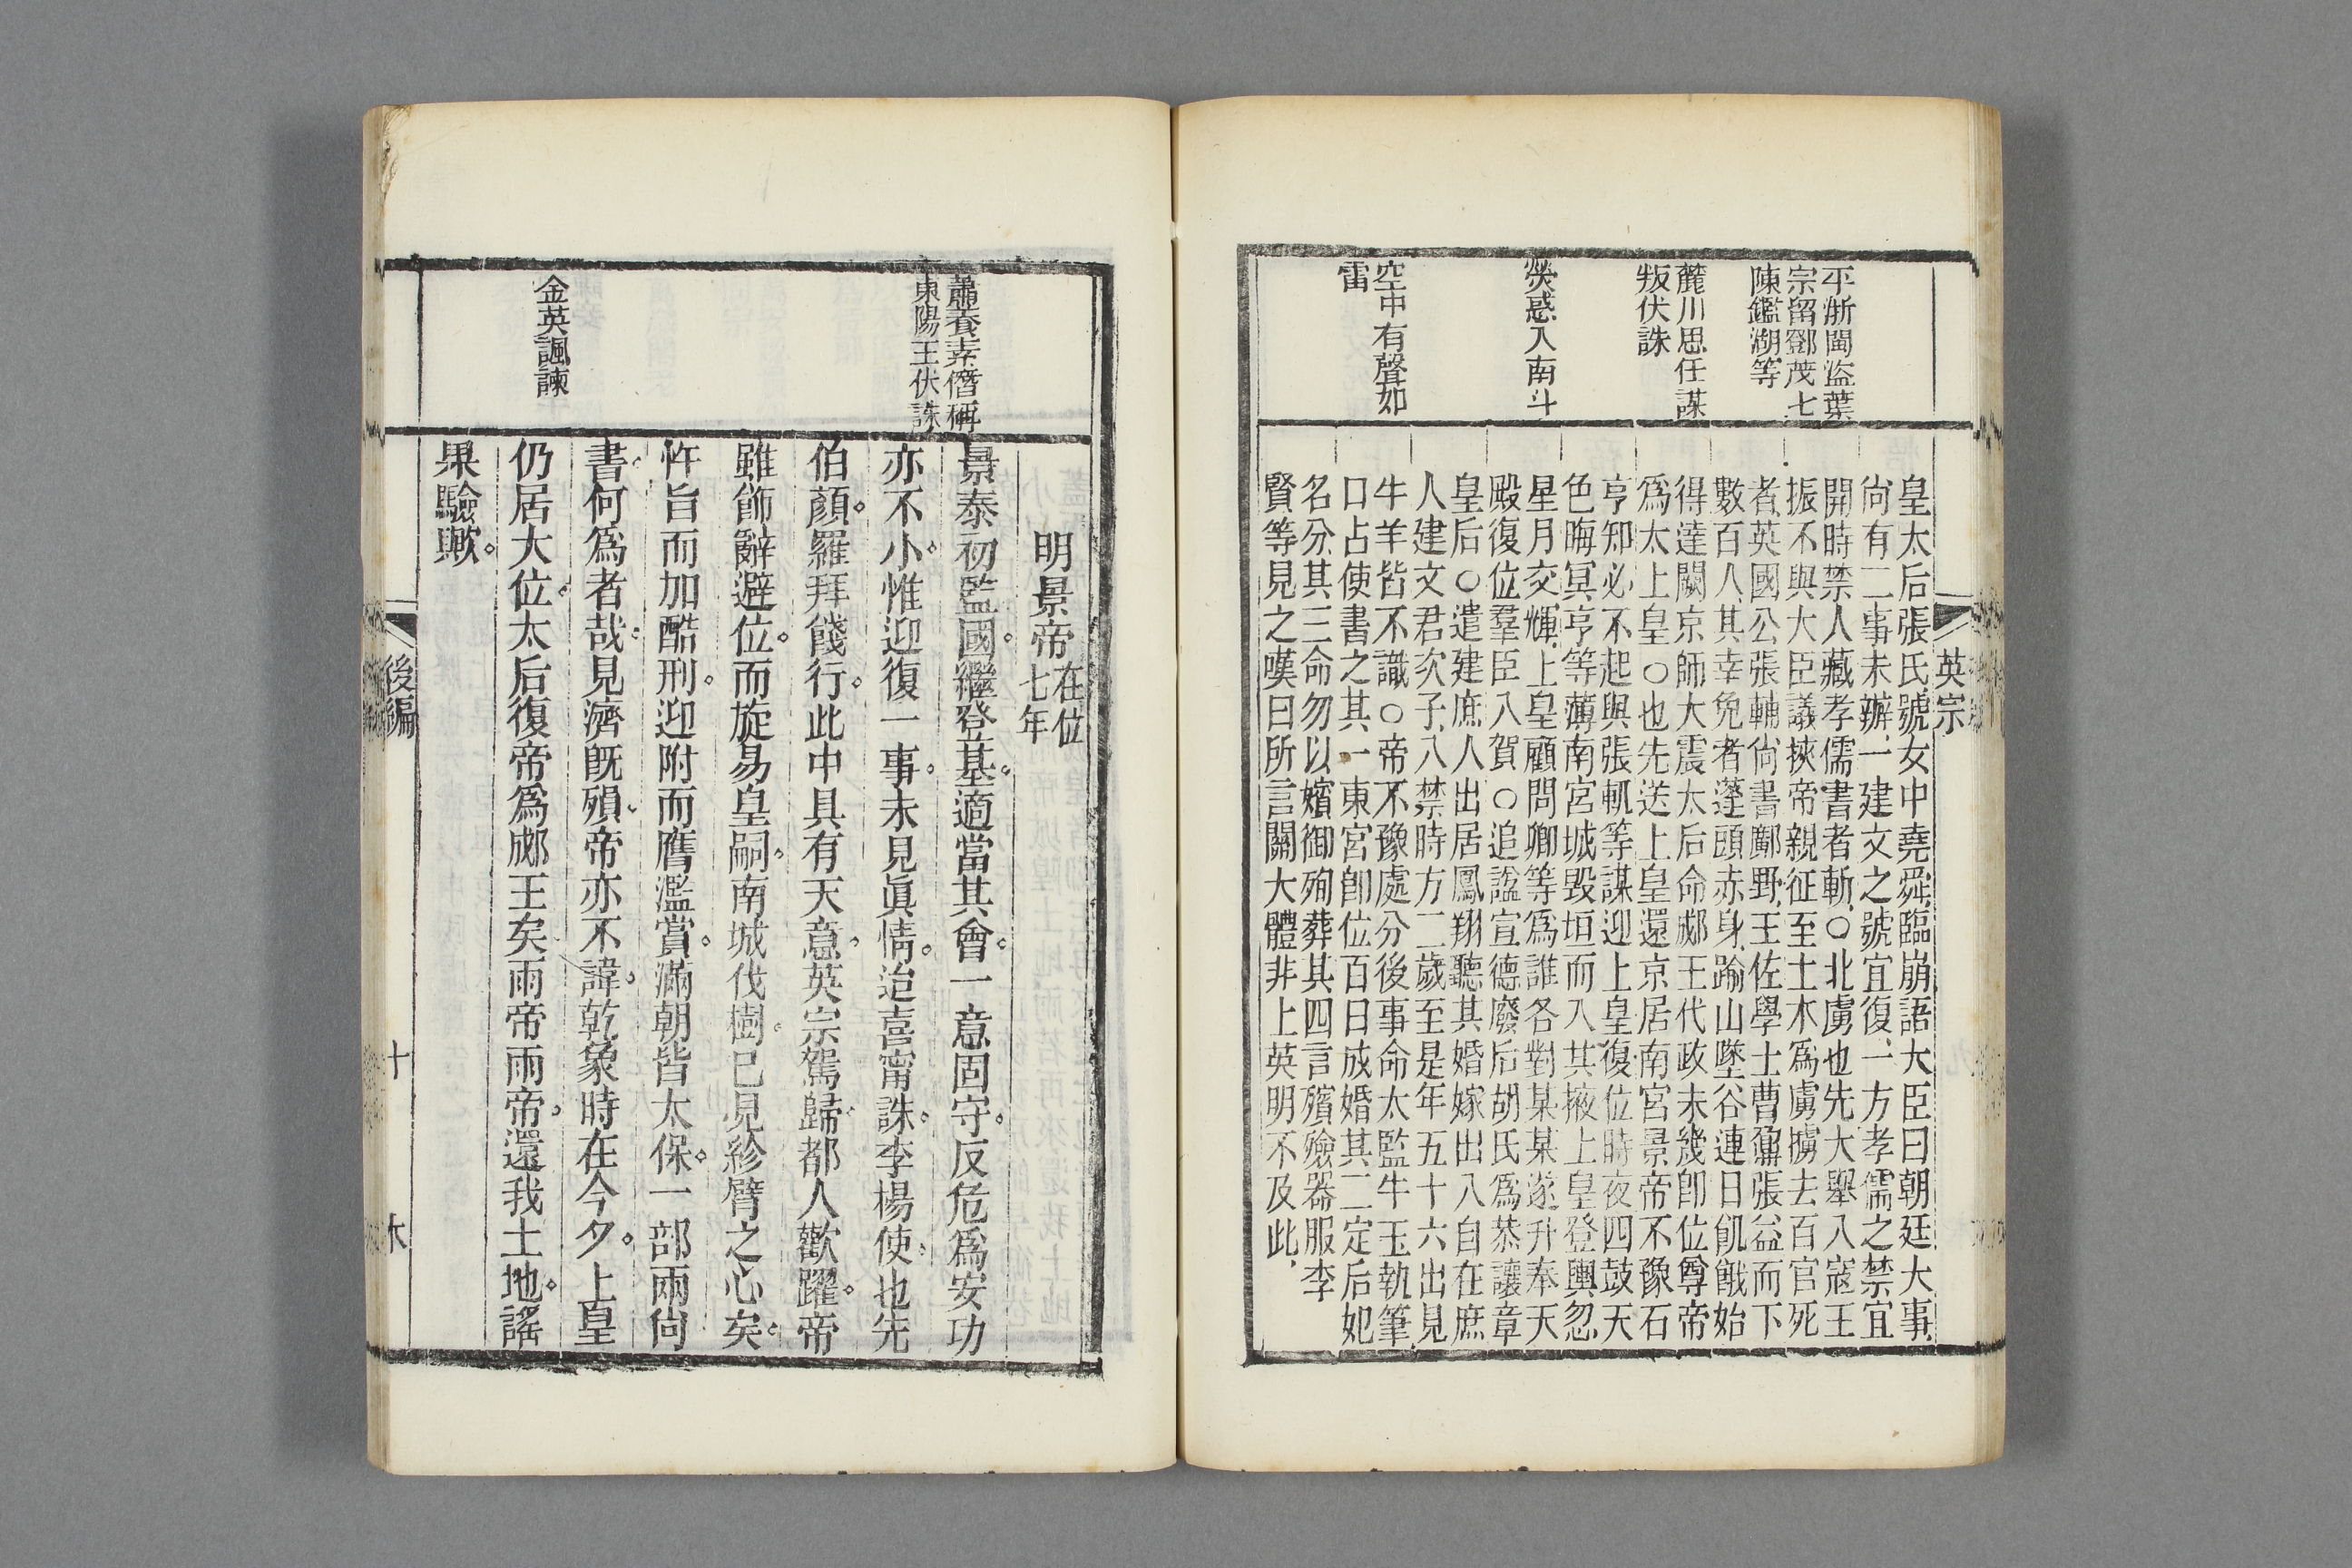 英宗
平浙閩盜葉
宗留鄧茂七
陳鑑湖等
麓川思任謀
叛伏誅
熒惑入南斗
空中有聲如
雷
皇太后張氏號女中堯舜臨崩語大臣曰朝廷大事
尙有二事未辦一建文之號宜復一方孝儒之禁宜
開時禁人藏孝儒書者斬○北虜也先大舉入寇王
振不與大臣議挾帝親征至土木爲虜擄去百官死
者英國公張輔尙書鄺野王佐學士曹鼐張益而下
數百人其幸免者蓬頭赤身踰山墜谷連日飢餓始
得達闕京師大震太后命郕王代政未幾卽位尊帝
爲太上皇○也先送上皇還京居南宮景帝不豫石
亨知必不起與張軏等謀迎上皇復位時夜四鼓天
色晦冥亨等薄南宮城毀垣而入其掖上皇登輿忽
星月交輝上皇顧問卿等爲誰各對某某遂升奉天
殿復位羣臣入賀○追諡宣德廢后胡氏爲恭讓章
皇后○遣建庶人出居鳳翔聽其婚嫁出入自在庶
人建文君次子入禁時方二歲至是年五十六出見
牛羊皆不識○帝不豫處分後事命太監牛玉執筆
口占使書之其一東宮卽位百日成婚其二定后妃
名分其三命勿以嬪御殉葬其四言殯殮器服李
賢等見之嘆曰所言關大體非上英明不及此
蕭養素僭稱
東陽王伏誅
金英諷諫
明景帝在位
七年
景泰初監國繼登基適當其會一意固守反危爲安功
亦不小惟迎復一事未見眞情迨喜甯誅李楊使也先
伯顔羅拜餞行此中具有天意英宗駕歸都人歡躍帝
雖飾辭避位而旋易皇嗣南城伐樹已見紾臂之心矣
忤旨而加酷刑迎附而膺濫賞滿朝皆太保一部兩尙
書何爲者哉見濟旣殞帝亦不諱乾象時在今夕上皇
仍居大位太后復帝爲郕王矣雨帝雨帝還我土地謠
果驗歟
後編
十